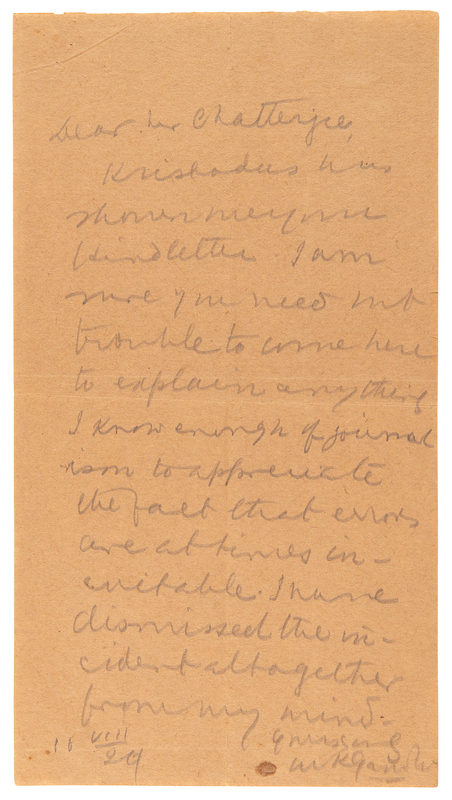 Dear Mr Chatterjee,
Krishodas has
shown me your
kind letter. I am
sure you need not
trouble to come here
to explain anything
I know enough of journal
ism to appreciate
the fact that errors
are at times in-
evitable. I have
dismissed the in-
cident altogether
from my mind.
Yours sincy
18 VIII/24 MKGandhi